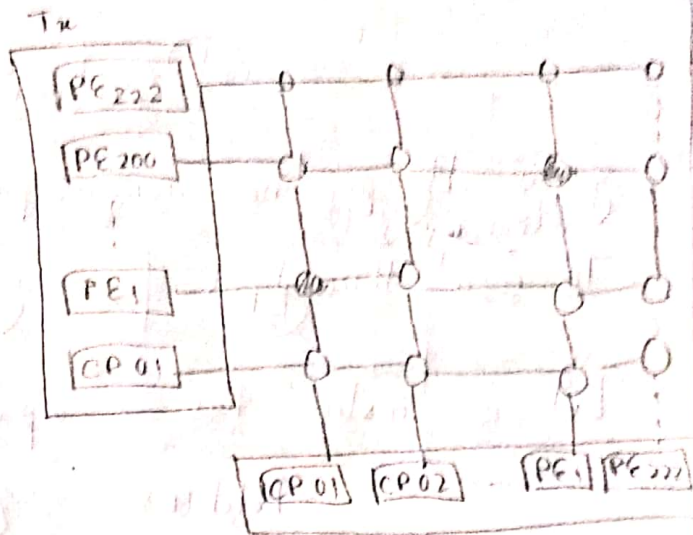 PE222
PE200
PE1
CP01
CP01 CP02 PE1 PE222